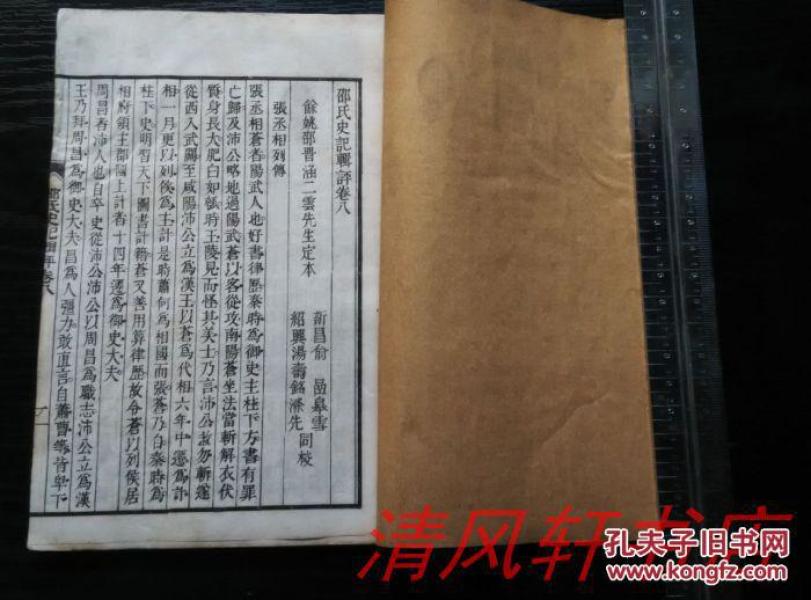 邵氏史記輯評卷八
餘姚邵晉涵二雲先生定本
新昌俞嵒皋雪
紹興湯壽銘滌先 同校
張丞相列傳
張丞相蒼者陽武人也好書律歷秦時為御史主柱下方書有罪
亡歸及沛公略地過陽武蒼以客從攻南陽蒼坐法當斬解衣伏
質身長大肥白如瓠時王陵見而怪其美士乃言沛公赦勿斬遂
從西入武關至咸陽沛公立為漢王以蒼為代相六年中遷為計
相一月更以列侯為主計是時蕭何為相國而張蒼乃自秦時為
柱下史明習天下圖書計籍蒼又善用算律歷故令蒼以列侯居
相府領主郡國上計者十四年遷為御史大夫
周昌者沛人也自卒史從沛公沛公以周昌為職志沛公立為漢
王乃拜周昌為御史大夫昌為人彊力敢直言自蕭曹等皆卑下
邵氏史記輯評卷八
清风轩书店
孔夫子旧书网
www.kongfz.com